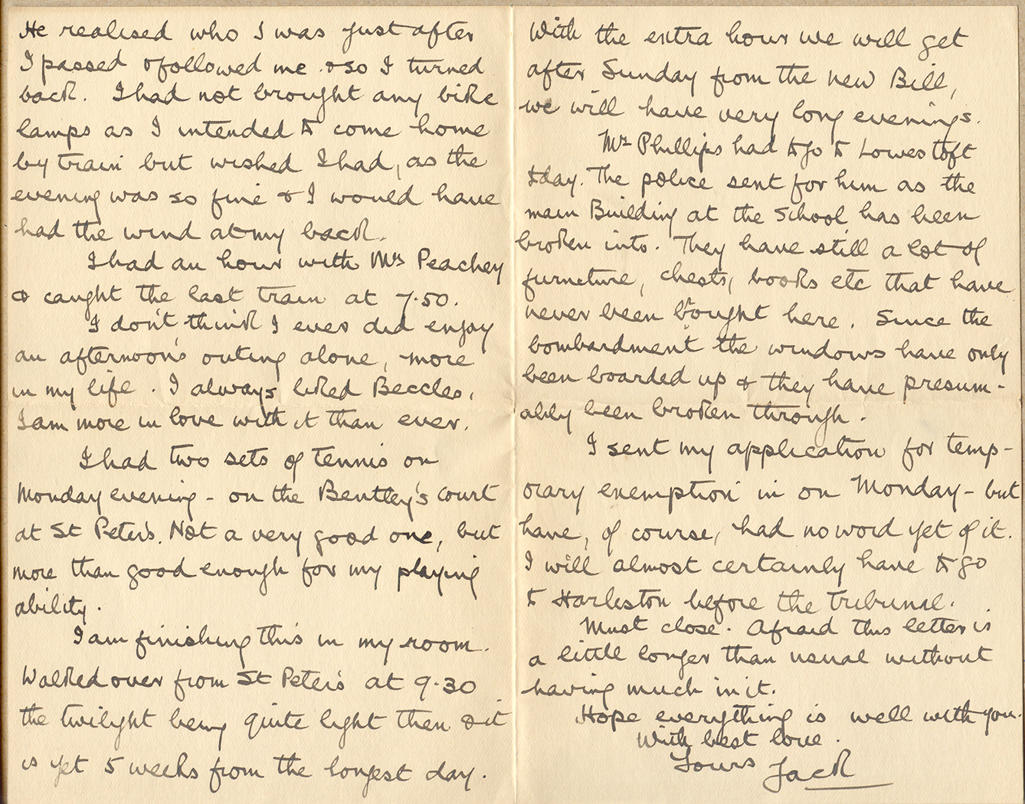 He realised who I was just after
I passed & followed me & so I turned
back. I had not brought any bike
lamps as I intended to come home
by train but wished I had, as the
evening was so fine & I would have
had the wind at my back.
I had an hour with Mrs Peachey
& caught the last train at 7.50.
I don't think I ever did enjoy
an afternoon's outing alone, more
in my life. I always liked Beccles,
I am more in love with it than ever.
I had two sets of tennis on
Monday evening - on the Bentley's court
at St Peter's. Not a very good one, but
more than good enough for my playing
ability.
I am finishing this in my room.
Walked over from St Peter's at 9.30
the twilight being quite light then & it
is yet 5 weeks from the longest day.
With the extra hour we will get
after Sunday from the new Bill,
we will have very long evenings.
Mr Phillips had to go to Lowestoft
today. The police sent for him as the
main Building at the School has been
broken into. They have still a lot of
furniture, chests, books etc that have
never been brought here. Since the
bombardment the windows have only
been boarded up & they have presum-
ably been broken through.
I sent my application for temp-
orary exemption in on Monday - but
have, of course, had no word yet of it.
I will almost certainly have to go
to Harleston before the tribunal.
Must close. Afraid this letter is
a little longer than usual without
having much in it.
Hope everything is well with you.
With best love.
Yours Jack